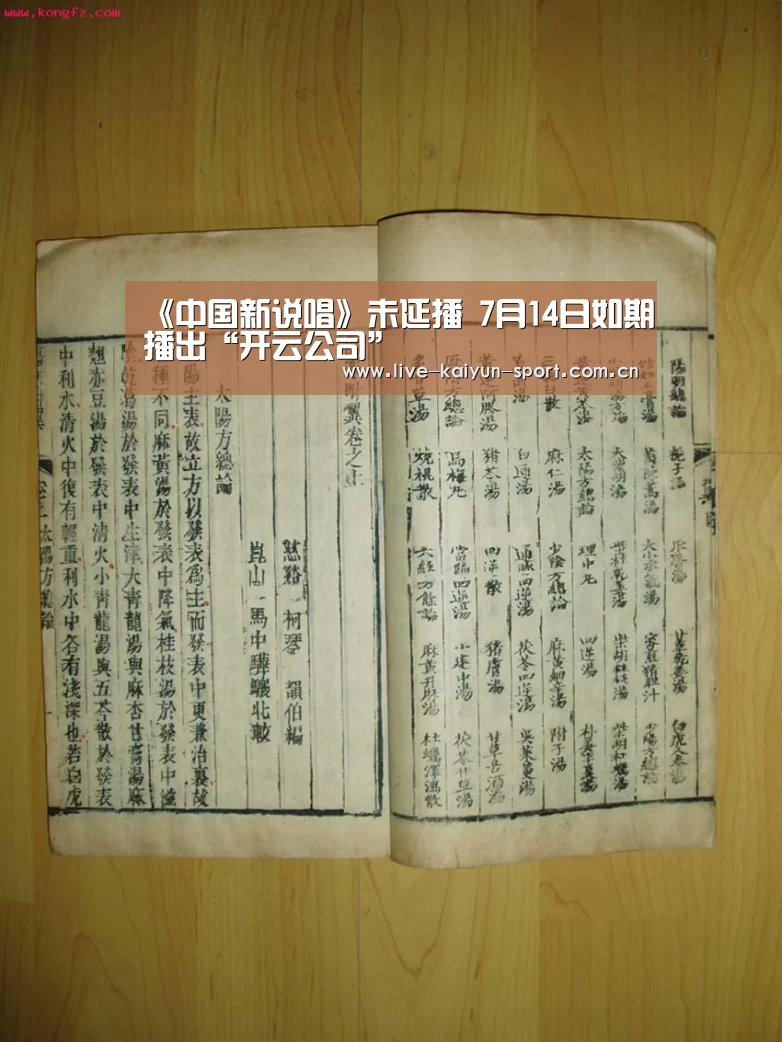 www.kongfz.com
《中国新说唱》未延播 7月14日如期
播出“开云公司”
www.live-kaiyun-sport.com.cn
陽明總論 梔子湯 甘草乾姜湯 白虎人參湯
茵陳蒿湯 大小承氣湯 蜜煎猪胆汁 少陽方總論
大柴胡湯 柴胡乾姜湯 柴胡桂枝湯
太陰方總論 理中丸 四逆湯
三白散 麻仁湯 少陰方總論 麻黃細辛湯 附子湯
白通湯 通脉四逆湯 茯苓四逆湯 吳茱萸湯
黃連阿膠湯 猪苓湯 四逆散 猪膚湯 甘草苦酒湯
厥陰方總論 烏梅丸 當歸四逆湯 小建中湯 茯苓甘草湯
草湯 燒裩散 六經方餘論 麻黃升麻湯 牡蠣澤瀉散
附翼卷之上
慈谿 柯琴 韻伯編
崑山 馬中驊驤北較
太陽方總論
陽主表故立方以發表為主而發表中更兼治裏故
種不同麻黃湯於發表中降氣桂枝湯於發表中滋
陰乾葛湯於發表中生津大青龍湯與麻杏甘膏湯麻
翹赤豆湯於發表中清火小青龍湯與五苓散於發表
中利水清火中復有輕重利水中各有淺深也若白虎
卷上 太陽方總論